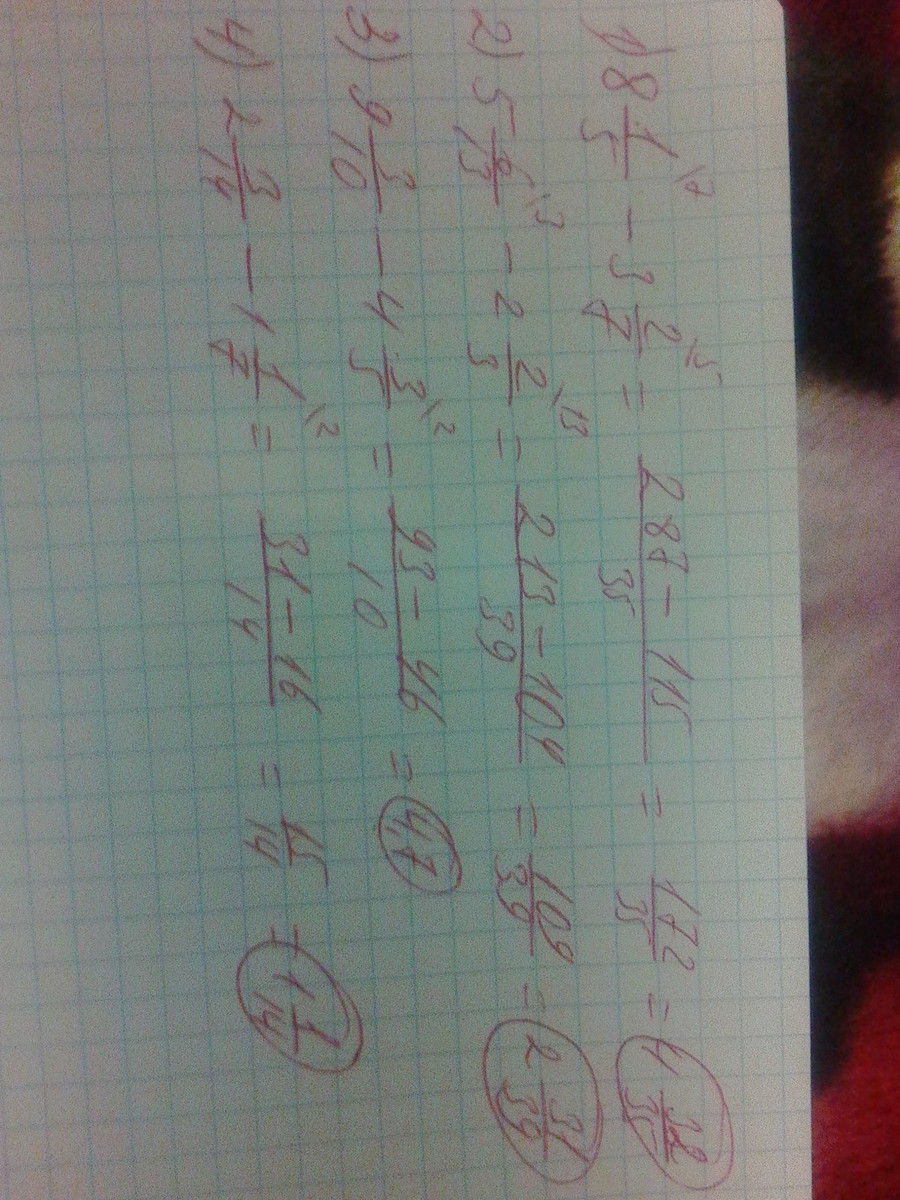 1) 8 1/5 \7 - 3 2/7 \5 = (287 - 115)/35 = 172/35 = 4 32/35
2) 5 6/13 \3 - 2 2/3 \13 = (213 - 104)/39 = 109/39 = 2 31/39
3) 9 3/10 - 4 3/5 \2 = (93 - 46)/10 = 4,7
4) 2 3/14 - 1 1/7 \2 = (31 - 16)/14 = 15/14 = 1 1/14